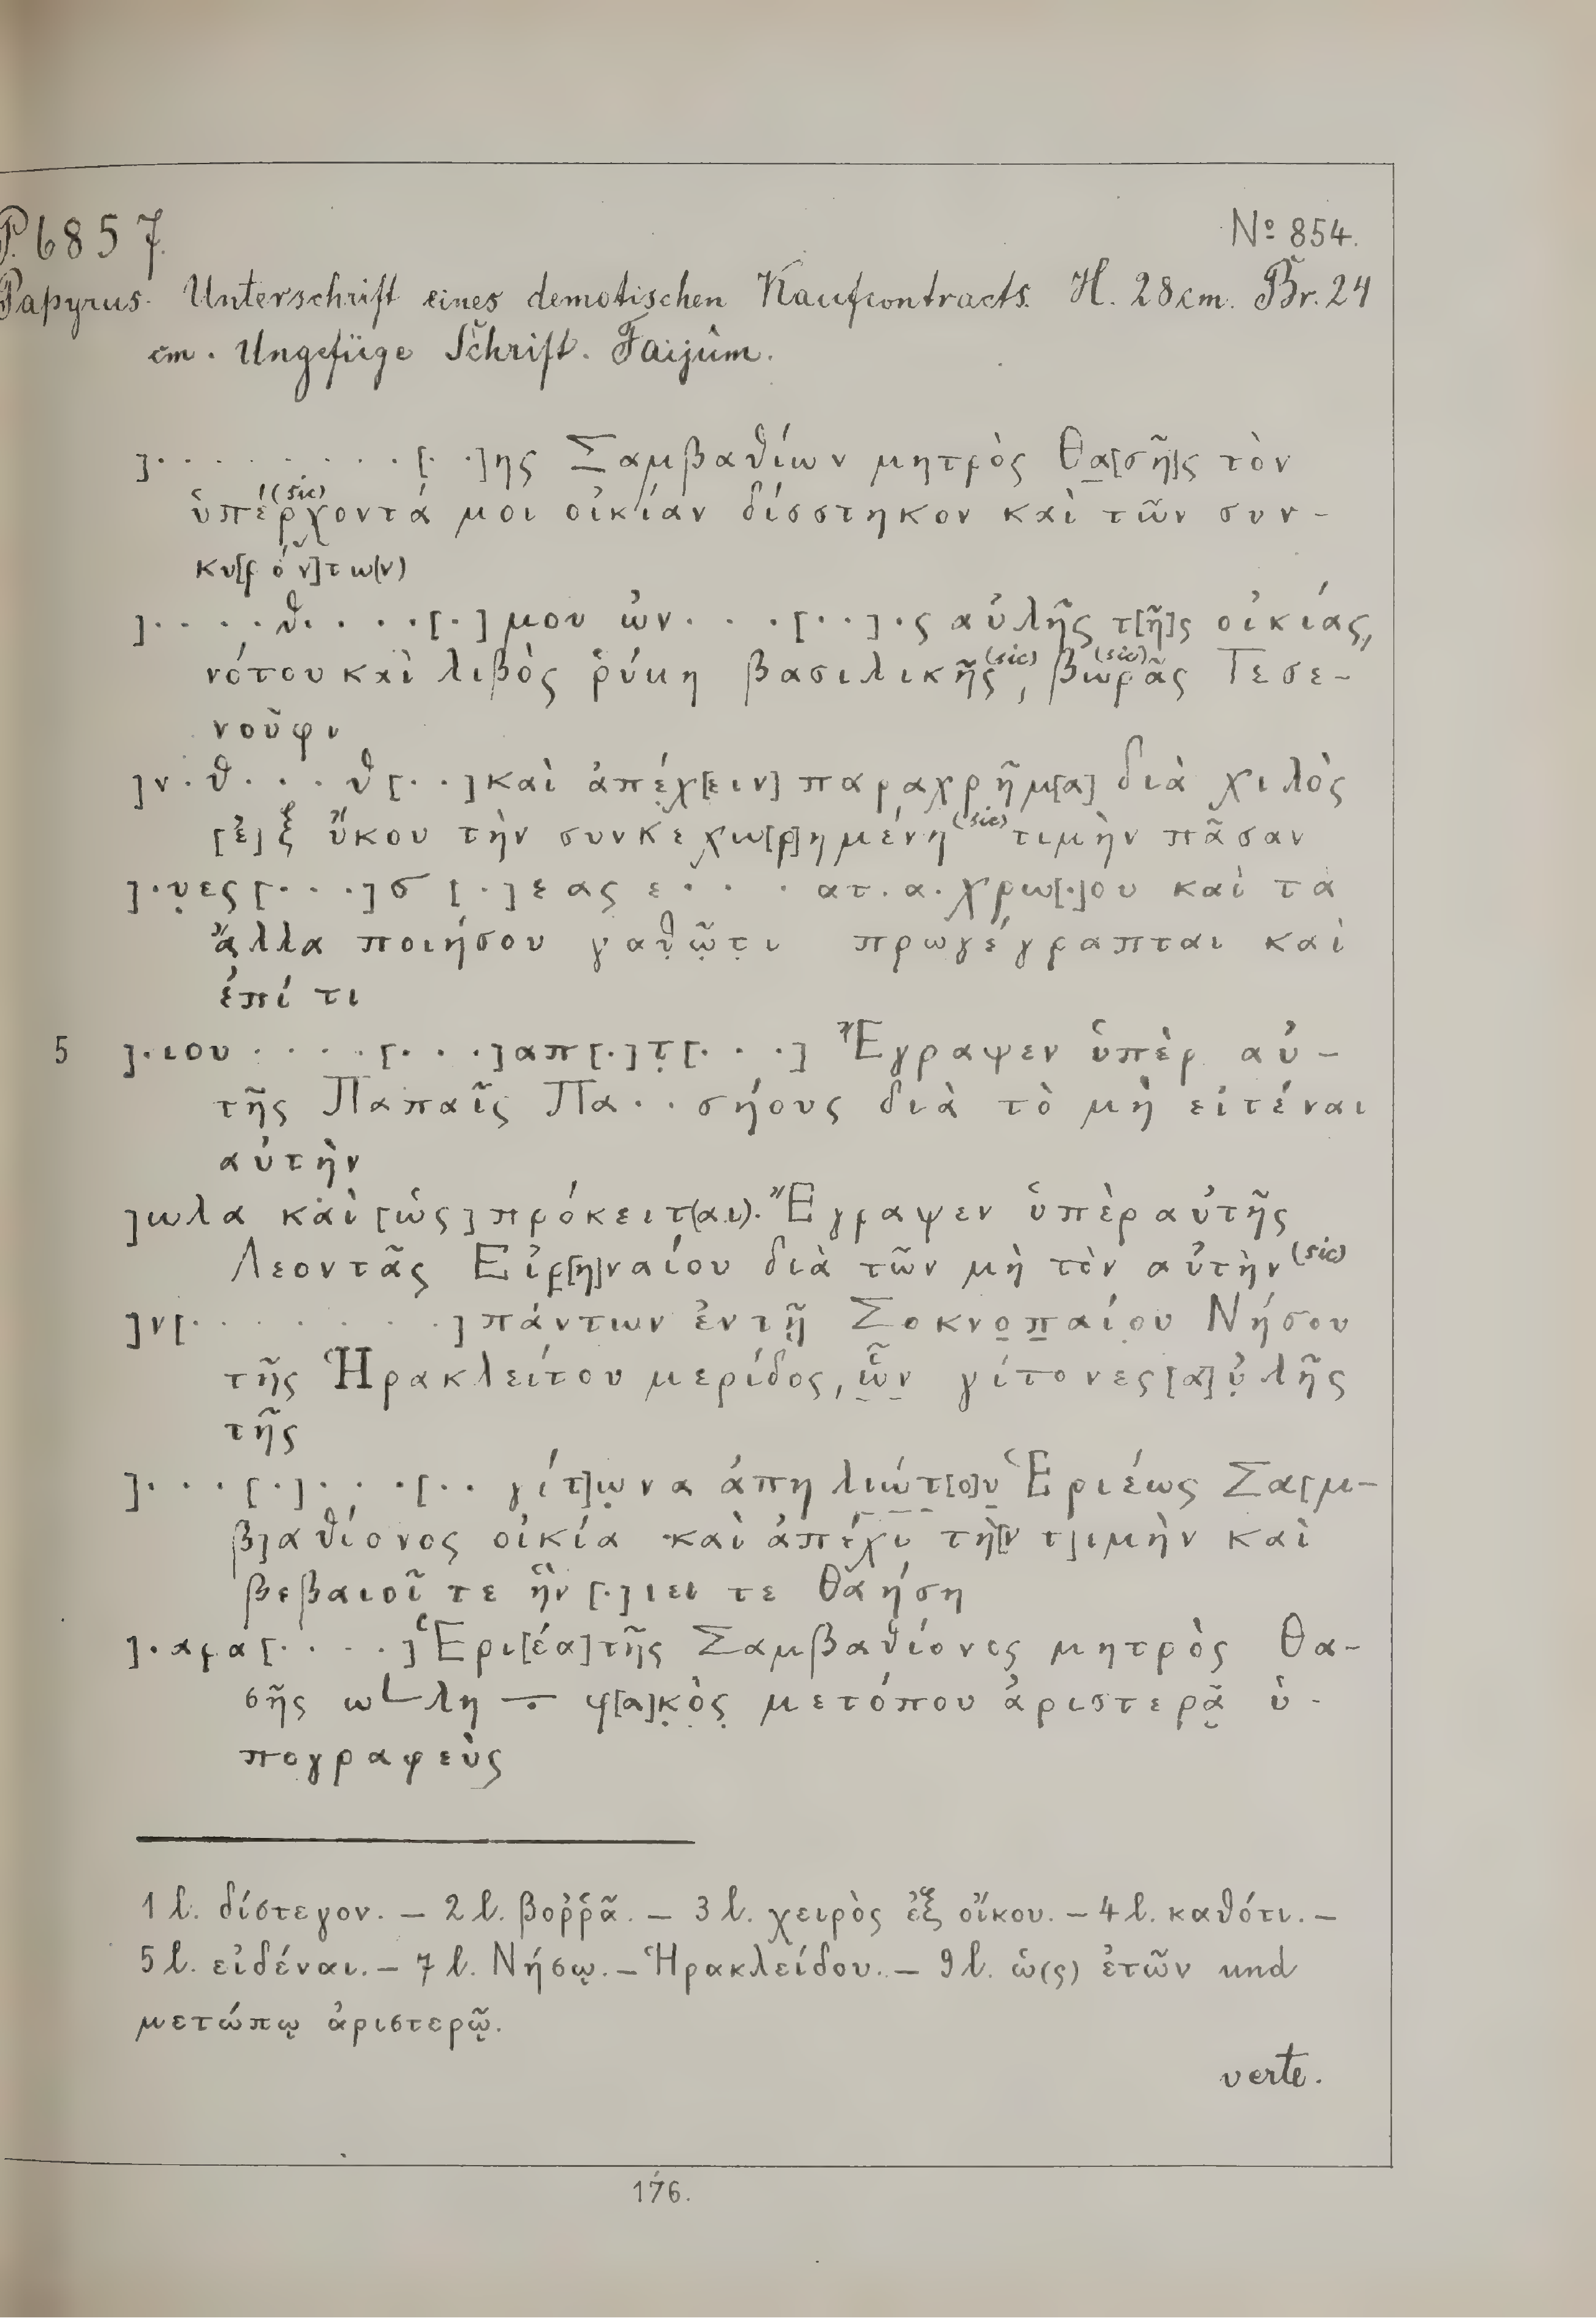 P. 6857. № 854.
Papyrus. Unterschrift eines demotischen Kaufcontracts. H. 28cm. Br. 24
cm. Ungefüge Schrift. Faijûm.
]· · · · · · · · ·[· ·]ης Σαμβαθίων μητρὸς Θα[σῆ]ς τὸν
ὑπέρχοντά (sic) μοι οἰκίαν δίσστηκον καὶ τῶν συν-
κυ[ρόν]τω(ν)
]· · · · θ · · · ·[·] μου ὠν · · · [· ·] · ς αὐλῆς τ[ῆ]ς οἰκίας,
νότου καὶ λιβὸς ῥύμη βασιλικῆς (sic), βωρᾶς (sic) Τεσε-
νοῦφι
]ν · θ · · · θ[· ·] καὶ ἀπέχ[ειν] παραχρῆμ[α] διὰ χιλὸς
[ἐ]ξ ὔκου τὴν συνκεχω[ρ]ημένη (sic) τιμὴν πᾶσαν
]· υες[· · ·]σ[·]εας ε · · · ατ · α · χρω[·]ου καὶ τα
ἄλλα ποιήσου γαθῶτι πρωγέγραπται καὶ
ἐπί τι
5 ]· ιου · · · · ·[· · ·]απ[·]τ[· · ·] Ἔγραψεν ὑπὲρ αὐ-
τῆς Παπαῖς Πα · · σήους διὰ τὸ μὴ εἰτέναι
αὐτὴν
]ωλα καὶ [ὡς] πρόκειτ(αι). Ἔγραψεν ὑπὲρ αὐτῆς
Λεοντᾶς Εἰρ[η]ναίου διὰ τῶν μὴ τὸν αὐτὴν (sic)
]ν[· · · · · · · ·] πάντων ἐν τῇ Σοκνοπαίου Νήσου
τῆς Ἡρακλείτου μερίδος, ὧν γίτονες [α]ὐλῆς
τῆς
]· · · [·] · · ·[· · γίτ]ωνα ἀπηλιώτ[ο]υ Ἑριέως Σα[μ-
β]αθίονος οἰκία καὶ ἀπέχι τὴ[ν τ]ιμὴν καὶ
βεβαιοῖ τε ἣν [·]ιει τε Θαήση
]· αρα[· · · ·] Ἑρι[έα]τῆς Σαμβαθίονος μητρὸς Θα-
σῆς ω└λη ÷ φ[α]κὸς μετόπου ἀριστερᾷ ὑ-
πογραφεὺς
1 l. δίστεγον. – 2 l. βοῤῥᾶ. – 3 l. χειρὸς ἐξ οἴκου. – 4 l. καθότι. –
5 l. εἰδέναι. – 7 l. Νήσῳ. – Ἡρακλείδου. – 9 l. ὡ(ς) ἐτῶν und
μετώπῳ ἀριστερῷ.
verte.
176.